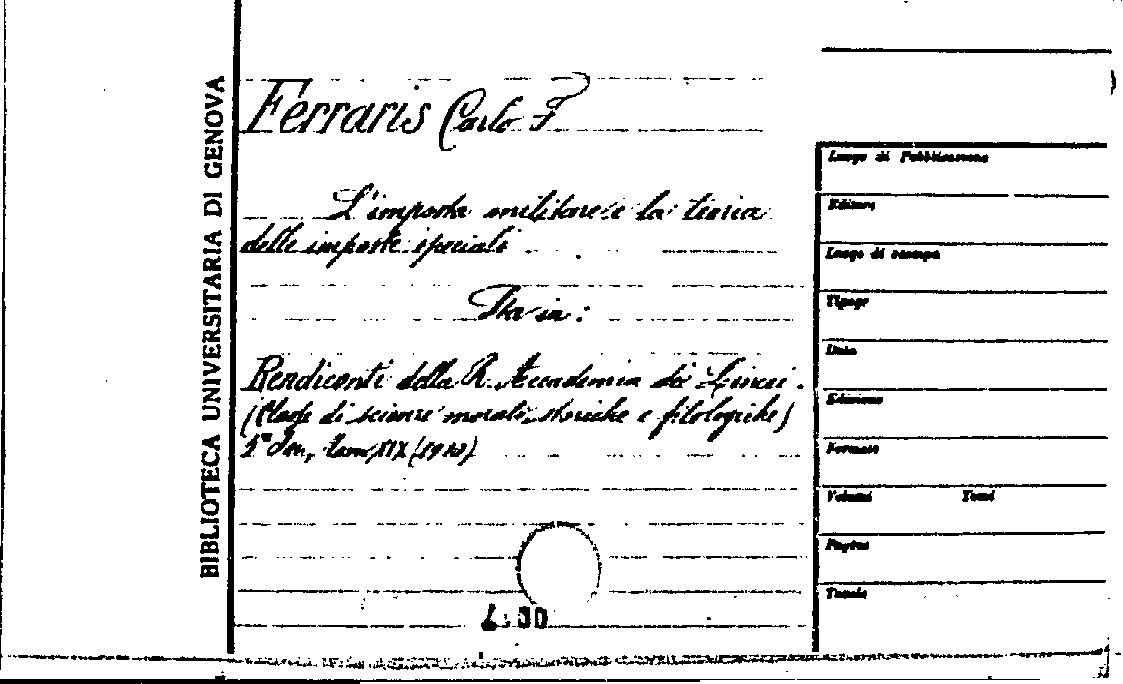 BIBLIOTECA UNIVERSITARIA DI GENOVA
Ferraris Carlo F
L'imposta militare e la teoria
delle imposte speciali
Sta in:
Rendiconti della R. Accademia dei Lincei.
(Classe di scienze morali, storiche e filologiche)
Ser., tom. XIX (1910)
Luogo di Pubblicazione
Editore
Luogo di stampa
Tipogr
Data
Edizione
Formato
Volumi Tomi
Pagine
Tavole